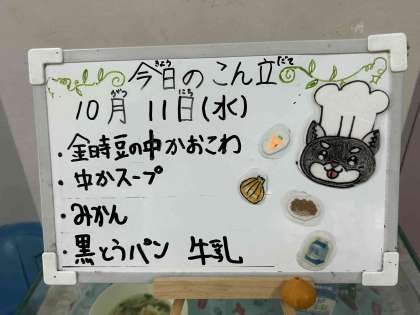 今日のこん立
10月 11日(水)
・金時豆の中かおこわ
・中かスープ
・みかん
・黒とうパン 牛乳